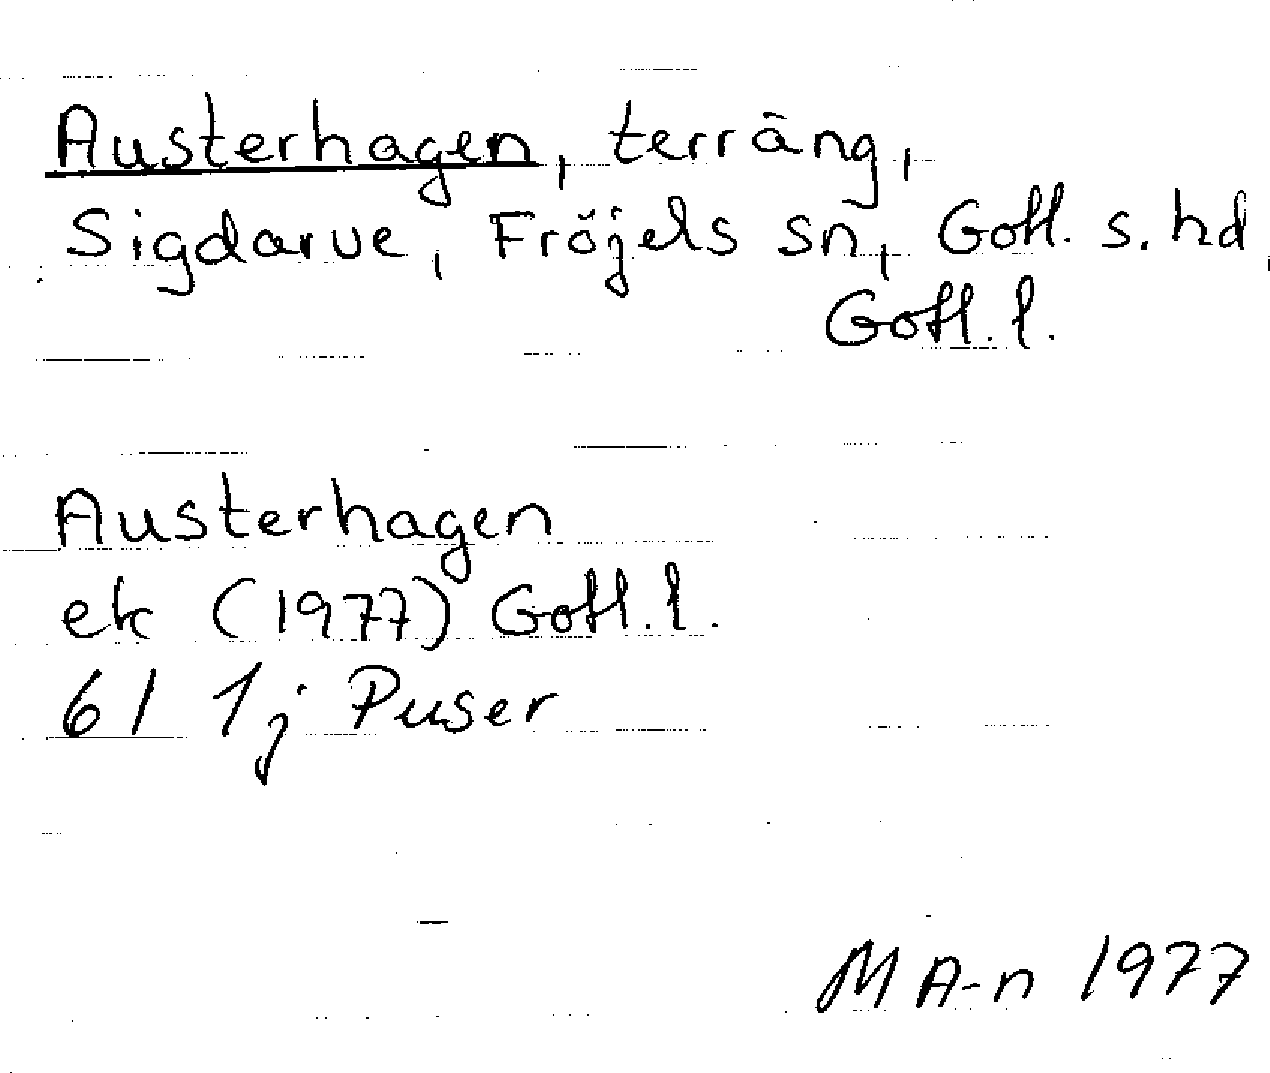 Austerhagen, terräng,
Sigdarve, Fröjels sn, Gotl. s. hd,
Gotl. l.
Austerhagen
ek (1977) Gotl. l.
6I 1j Puser
M A-n 1977